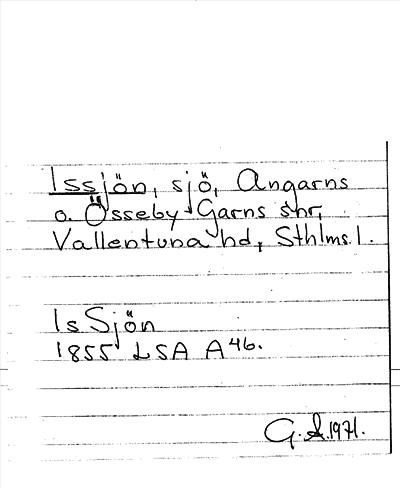 Issjön, sjö, Angarns
o. Össeby-Garns snr,
Vallentuna hd, Sthlms. l.
Is Sjön
1855 LSA A46.
G. 1971.